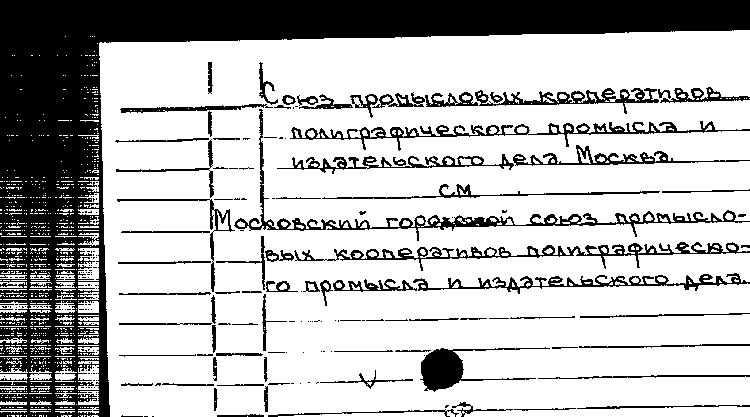 Союз промысловых кооперативов
полиграфического промысла и
издательского дела. Москва.
см.
Московский городской союз промысло-
вых кооперативов полиграфическо-
го промысла и издательского дела.